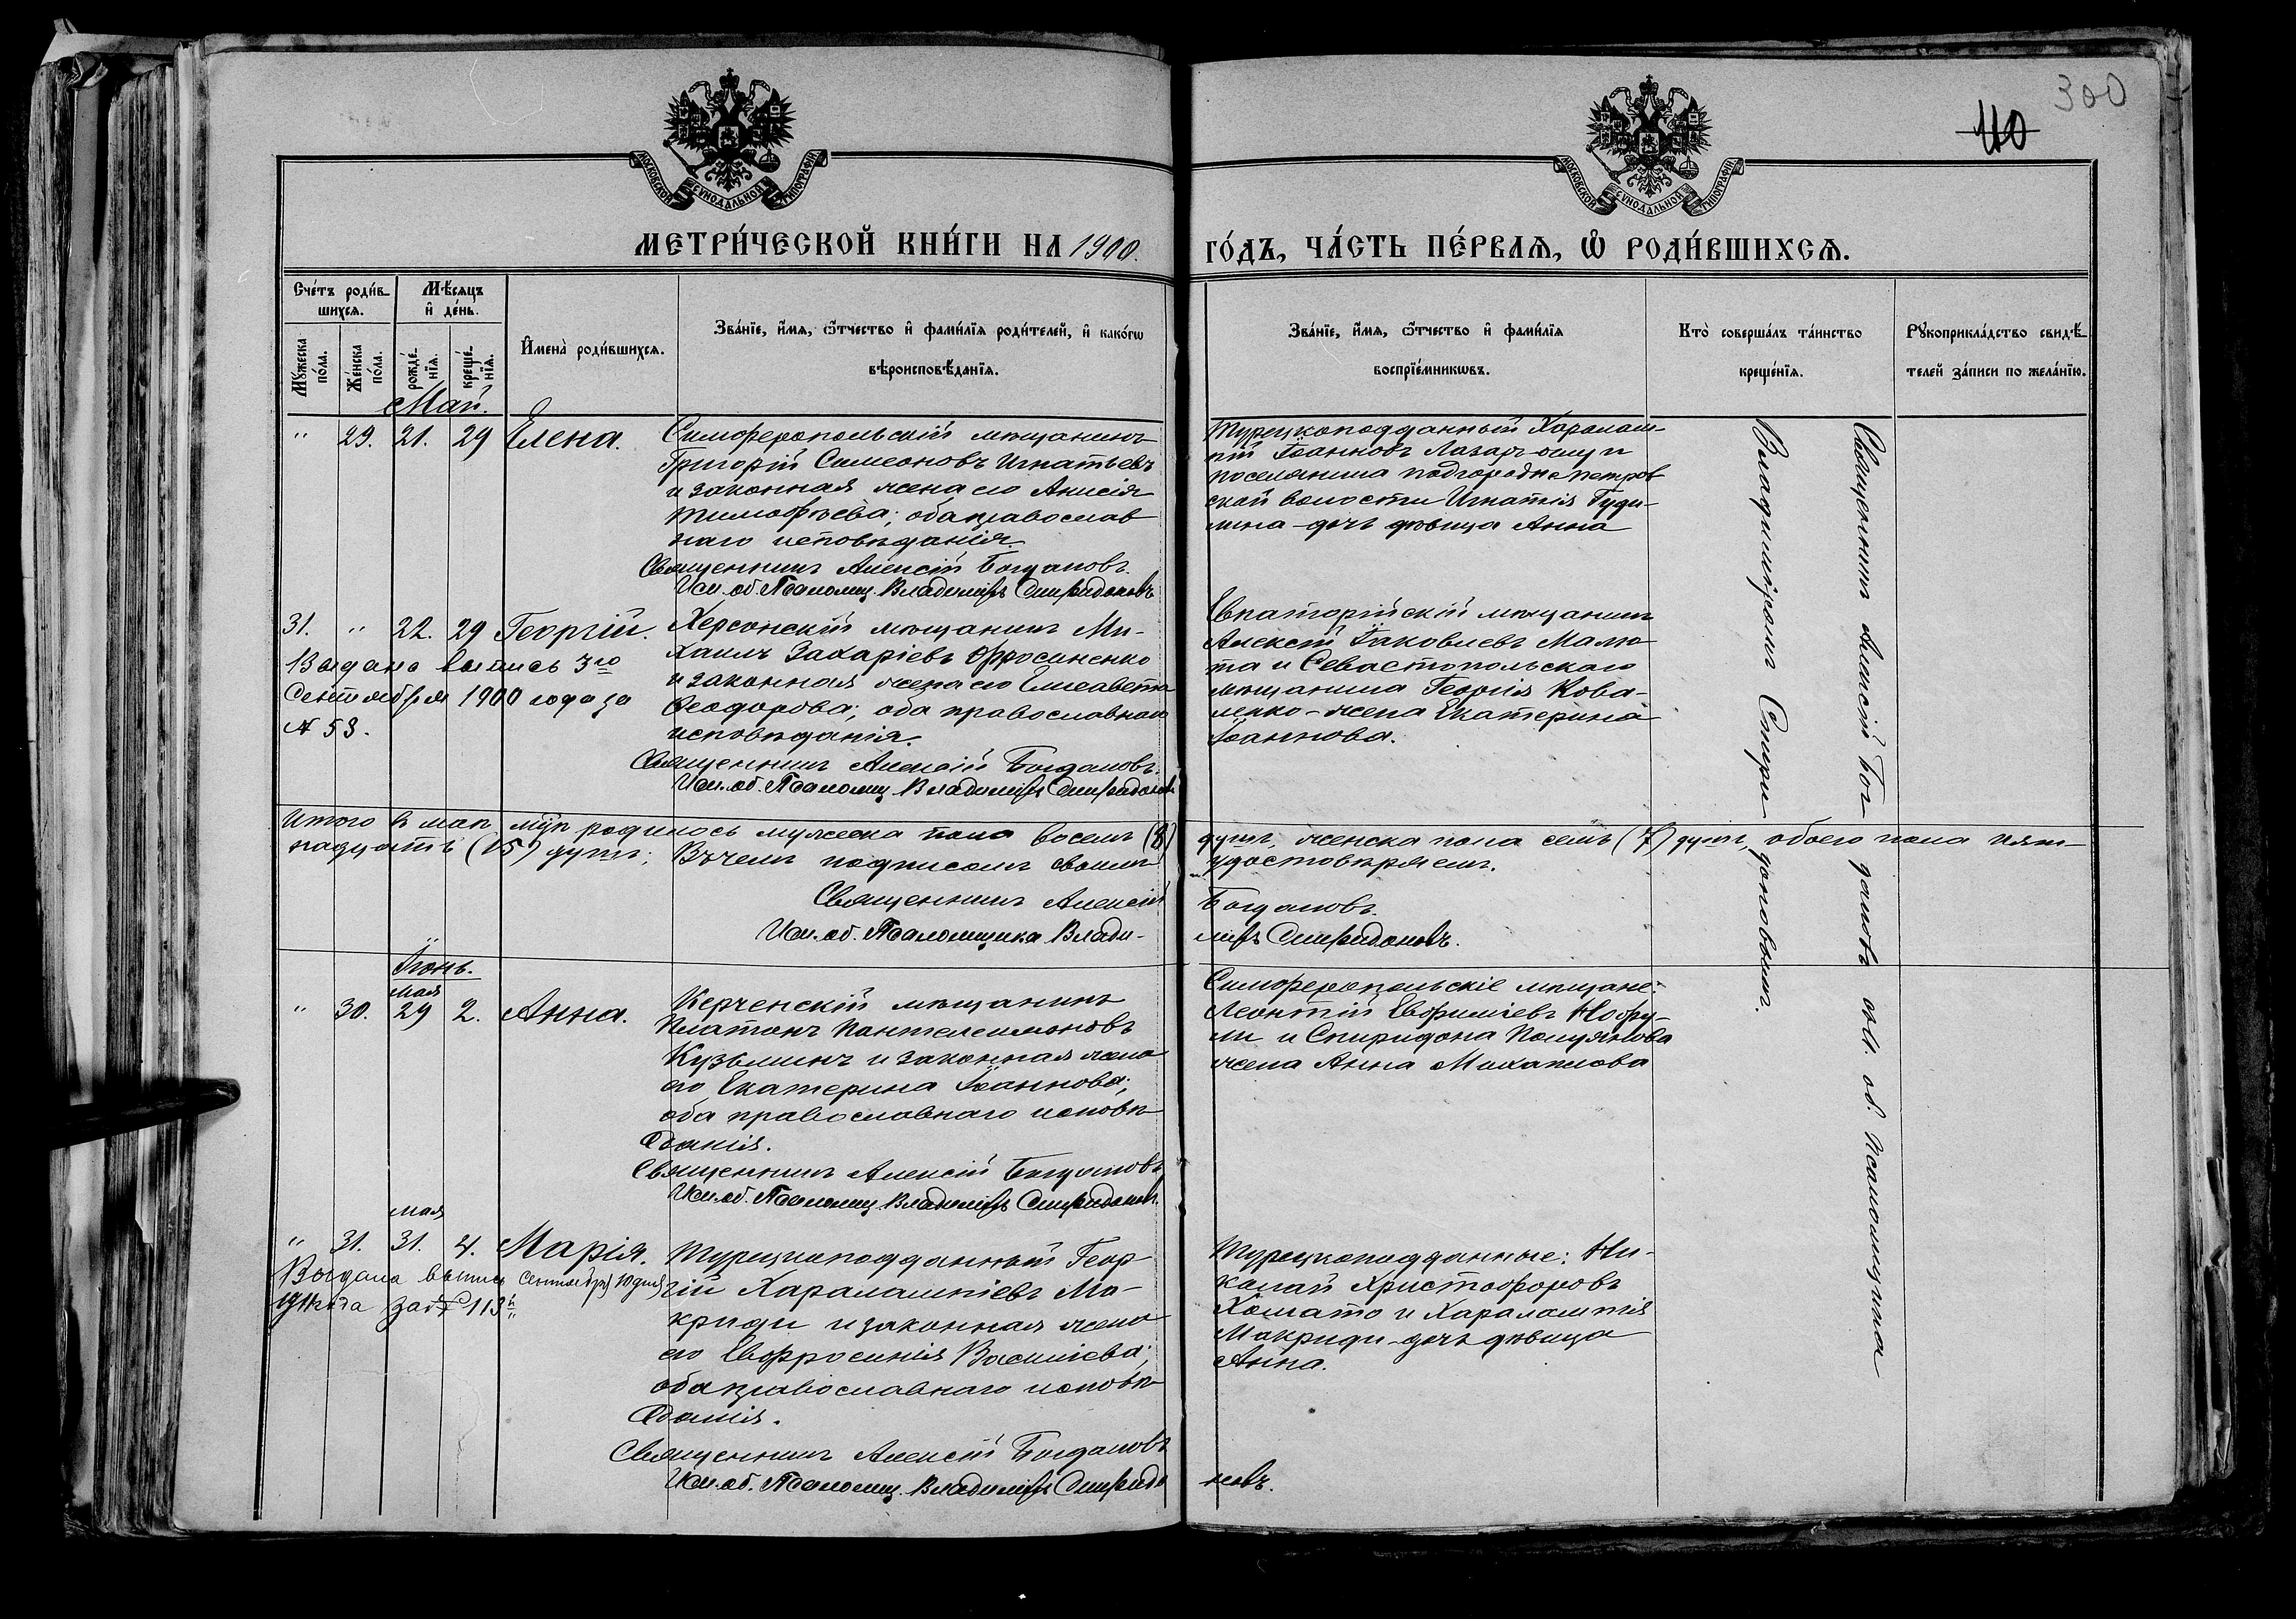 300
110
МОСКОВСКОЙ СѴНОДАЛЬНОЙ ТИПОГРАФІИ
МОСКОВСКОЙ СѴНОДАЛЬНОЙ ТИПОГРАФІИ
МЕТРИ́ЧЕСКОЙ КНИ́ГИ НА 1900.
ГО́ДЪ, ЧА́СТЬ ПЕ́РВАѦ, Ѡ҆ РОДИ́ВШИХСѦ.
Сче́тъ роди́в-
шихсѧ.
Мѣ́сѧцъ
и҆ де́нь.
Мꙋ́жеска
по́ла.
Же́нска
по́ла.
рожде́-
нїѧ.
креще́-
нїѧ.
И҆мена̀ роди́вшихсѧ.
Зва́нїе, и҆́мѧ, ѻ҆́тчество и҆ фами́лїѧ роди́телей, и҆ како́гѡ
вѣроисповѣ́данїѧ.
Зва́нїе, и҆́мѧ, ѻ҆́тчество и҆ фами́лїѧ
воспрїе́мникѡвъ.
Кто̀ соверша́лъ та́инство
креще́нїѧ.
Рꙋкоприкла́дство свидѣ́-
телей за́писи по жела́нїю.
Май.
" 29. 21. 29 Елена.
Симферопольскій мѣщанинъ
Григорій Симеоновъ Игнатьевъ
и законная жена его Анисія
Тимофѣева; оба православ
наго исповѣданія.
Священникъ Алексій Богдановъ.
Исп. об. Псаломщ. Владиміръ Спиридоновъ
Турецкоподданный Харалам-
пій Іоанновъ Лазаръ-оглу и
поселянина Подгородне-Петров
ской волости Игнатія Гуди-
лина - дочь дѣвица Анна
31. " 22. 29 Георгій.
Выдана выпись 3го
Сентября 1900 года за
№ 53.
Херсонскій мѣщанинъ Ми-
хаилъ Захаріевъ Офросиненко
и законная жена его Елисавета
Феодорова; оба православнаго
исповѣданія.
Священникъ Алексій Богдановъ.
Исп. об. Псаломщ. Владиміръ Спиридоновъ
Евпаторійскій мѣщанинъ
Алексій Іаковлевъ Малю-
та и Севастопольскаго
мѣщанина Георгія Кова-
ленко - жена Екатерина
Іоаннова.
Итого въ маѣ мцѣ родилось мужеска пола восемь (8) душъ, женска пола семь (7) душъ, обоего пола пят-
надцать (15) душъ; Въ чемъ подписомъ своимъ удостовѣряемъ.
Священникъ Алексій Богдановъ.
Исп. об. Псаломщика Владиміръ Спиридоновъ.
Іюнь.
мая
" 30. 29 2. Анна.
Керченскій мѣщанинъ
Платонъ Пантелеимоновъ
Кузьминъ и законная жена
его Екатерина Іоаннова;
оба православнаго исповѣ
данія.
Священникъ Алексій Богдановъ
Исп. об. Псаломщ. Владиміръ Спиридоновъ.
Симферопольскіе мѣщане:
Леонтій Евфиміевъ
и Спиридона
жена Анна Михаилова
мая
" 31. 31. 4. Марія.
Выдана выпись Сентября 10 дня
года за № 113
Турецкоподданный Геор-
гій Харалампіевъ Ма-
криди и законная жена
его Евфросинія Васильева;
оба православнаго исповѣ
данія.
Священникъ Алексій Богдановъ
Исп. об. Псаломщ. Владиміръ Спиридоновъ.
Турецкоподданные: Ни-
колай Христофоровъ
и Харалампія
Макриди - дочь дѣвица
Анна.
Священникъ Алексій Богдановъ съ и. об. Псаломщика
Владиміромъ Спиридоновымъ.